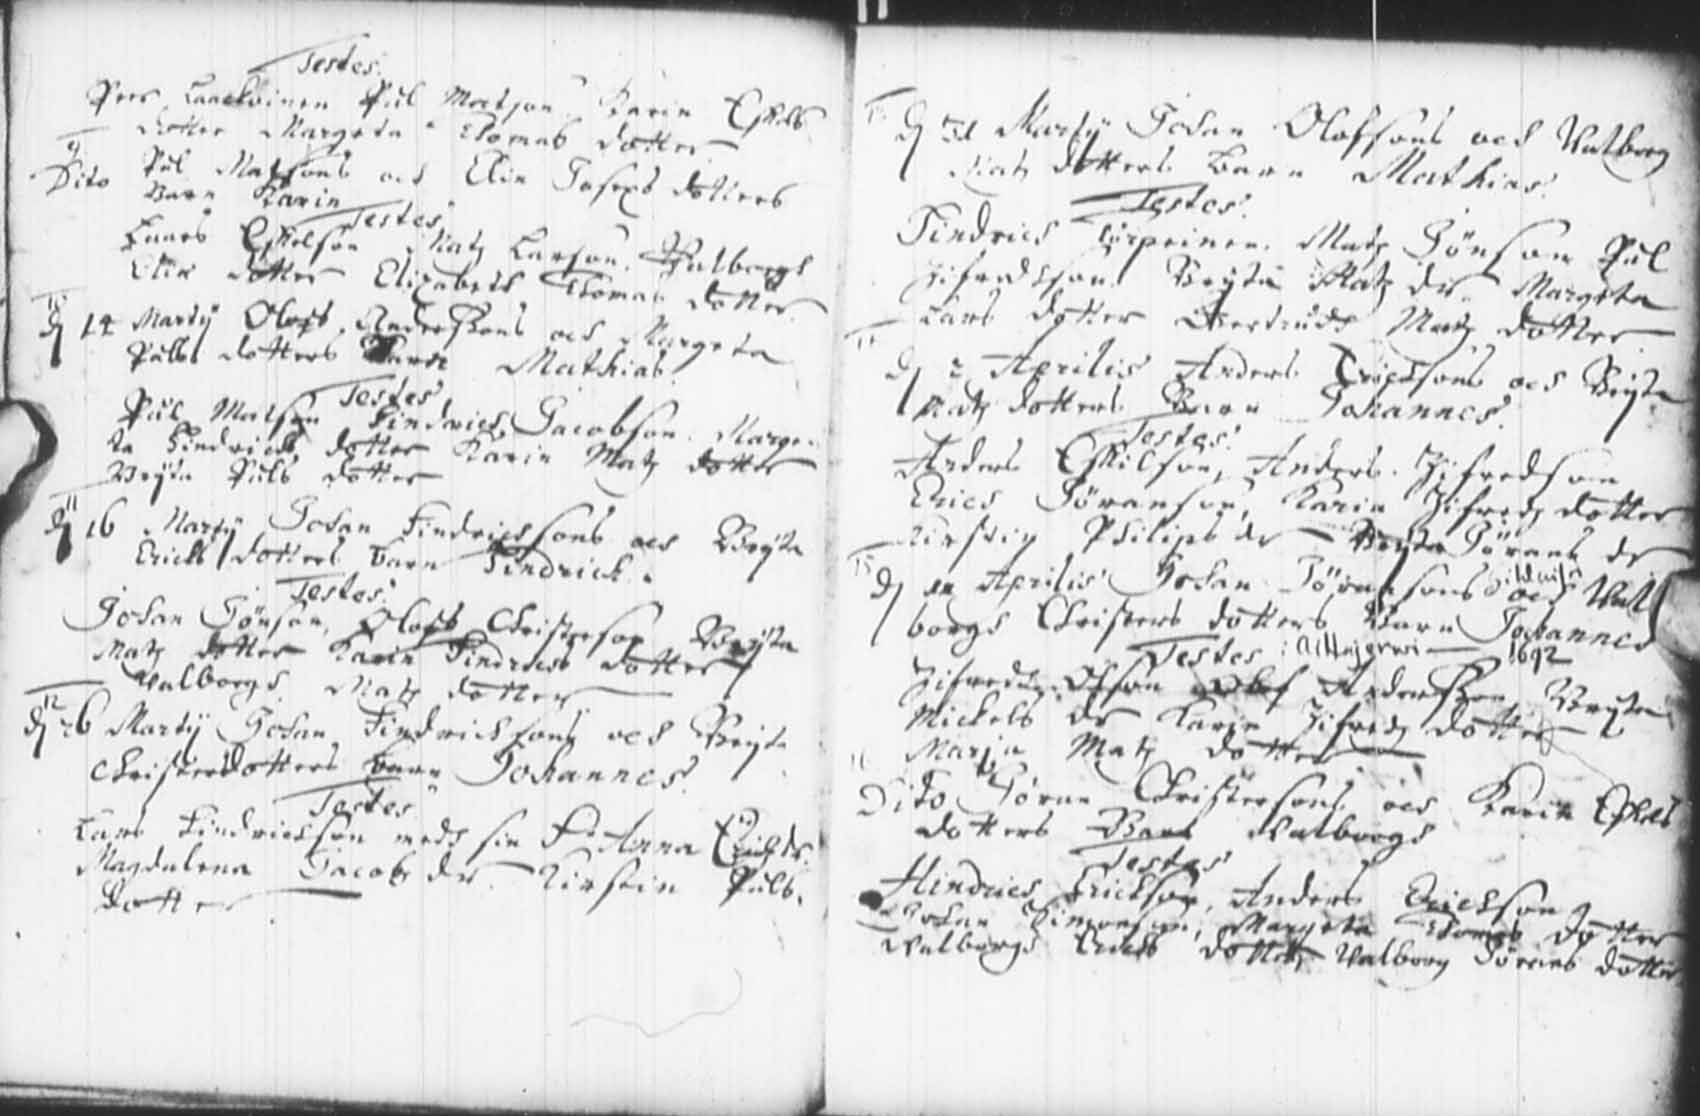 Testes.
Pers Laackoinen Pål Matzson Karin Eskils
dotter Margeta Thomas dotter
9
Dito Pål Matssons och Elin Josephs dotters
Barn Karin
Testes
Laars Eskilson Matz Larson. Walborgh
Elin dotter Elizabeth Thomas dotter.
10
d 14 Martij Olofs Anderssons och Margeta
Påls dotters Barn Mathias.
Testes
Pål Matson Hindrich Jacobson. Marge-
ta Hindrichs dotter Karin Matz dotter
Bryta Påls dotter
11
d 16 Martij Johan Hindrichssons och Bryta
Erichs dotters barn Hindrick.
Testes.
Johan Jönson, Olofs Christerson Bryta
Matz dotter Karin Hindrichs dotter
Walborgh Matz dotter
12
d 26 Martij Johan Hindrichsons och Bryta
Christersdotters barn Johannes.
Testes
Lars Hindrichsson medh sin H. Anna Erichs dr.
Magdalena Jacobs dr. Kirstin Påls
dotter
13
d 31 Martij Johan Olofsons och Walborg
Matz dotters barn Mathias.
Testes.
Hindrich Matz Jönson Pål
Zifredsson. Bryta Matz dr. Margeta
Lars dotter Gertrudh Matz dotter
14
d 2 Aprilis Anders Erichsons och Bryta
Matz dotters Barn Johannes.
Testes.
Anders Eskilson, Anders Zifredson
Erich Göranson, Karin Zifredz dotter
Kirstin Philips dr Bryta Görans dr
15
d Aprilis Johan Göransons och Wal
borgs Christers dotters Barn Johannes
Testes : 1692
Zifredz Olson Olof Andersson, Bryta
Mickels dr Karin Zifredz dotter
Marja Matz dotter
16
Dito Göran Christersons och Karin Eskils
dotters Barn Walborgh
Testes
Hindrich Erickson, Anders Erickson
Johan Simonson, Margeta Thomas dotter
Walborgh Erichs dotter Walborg Görans dotter.